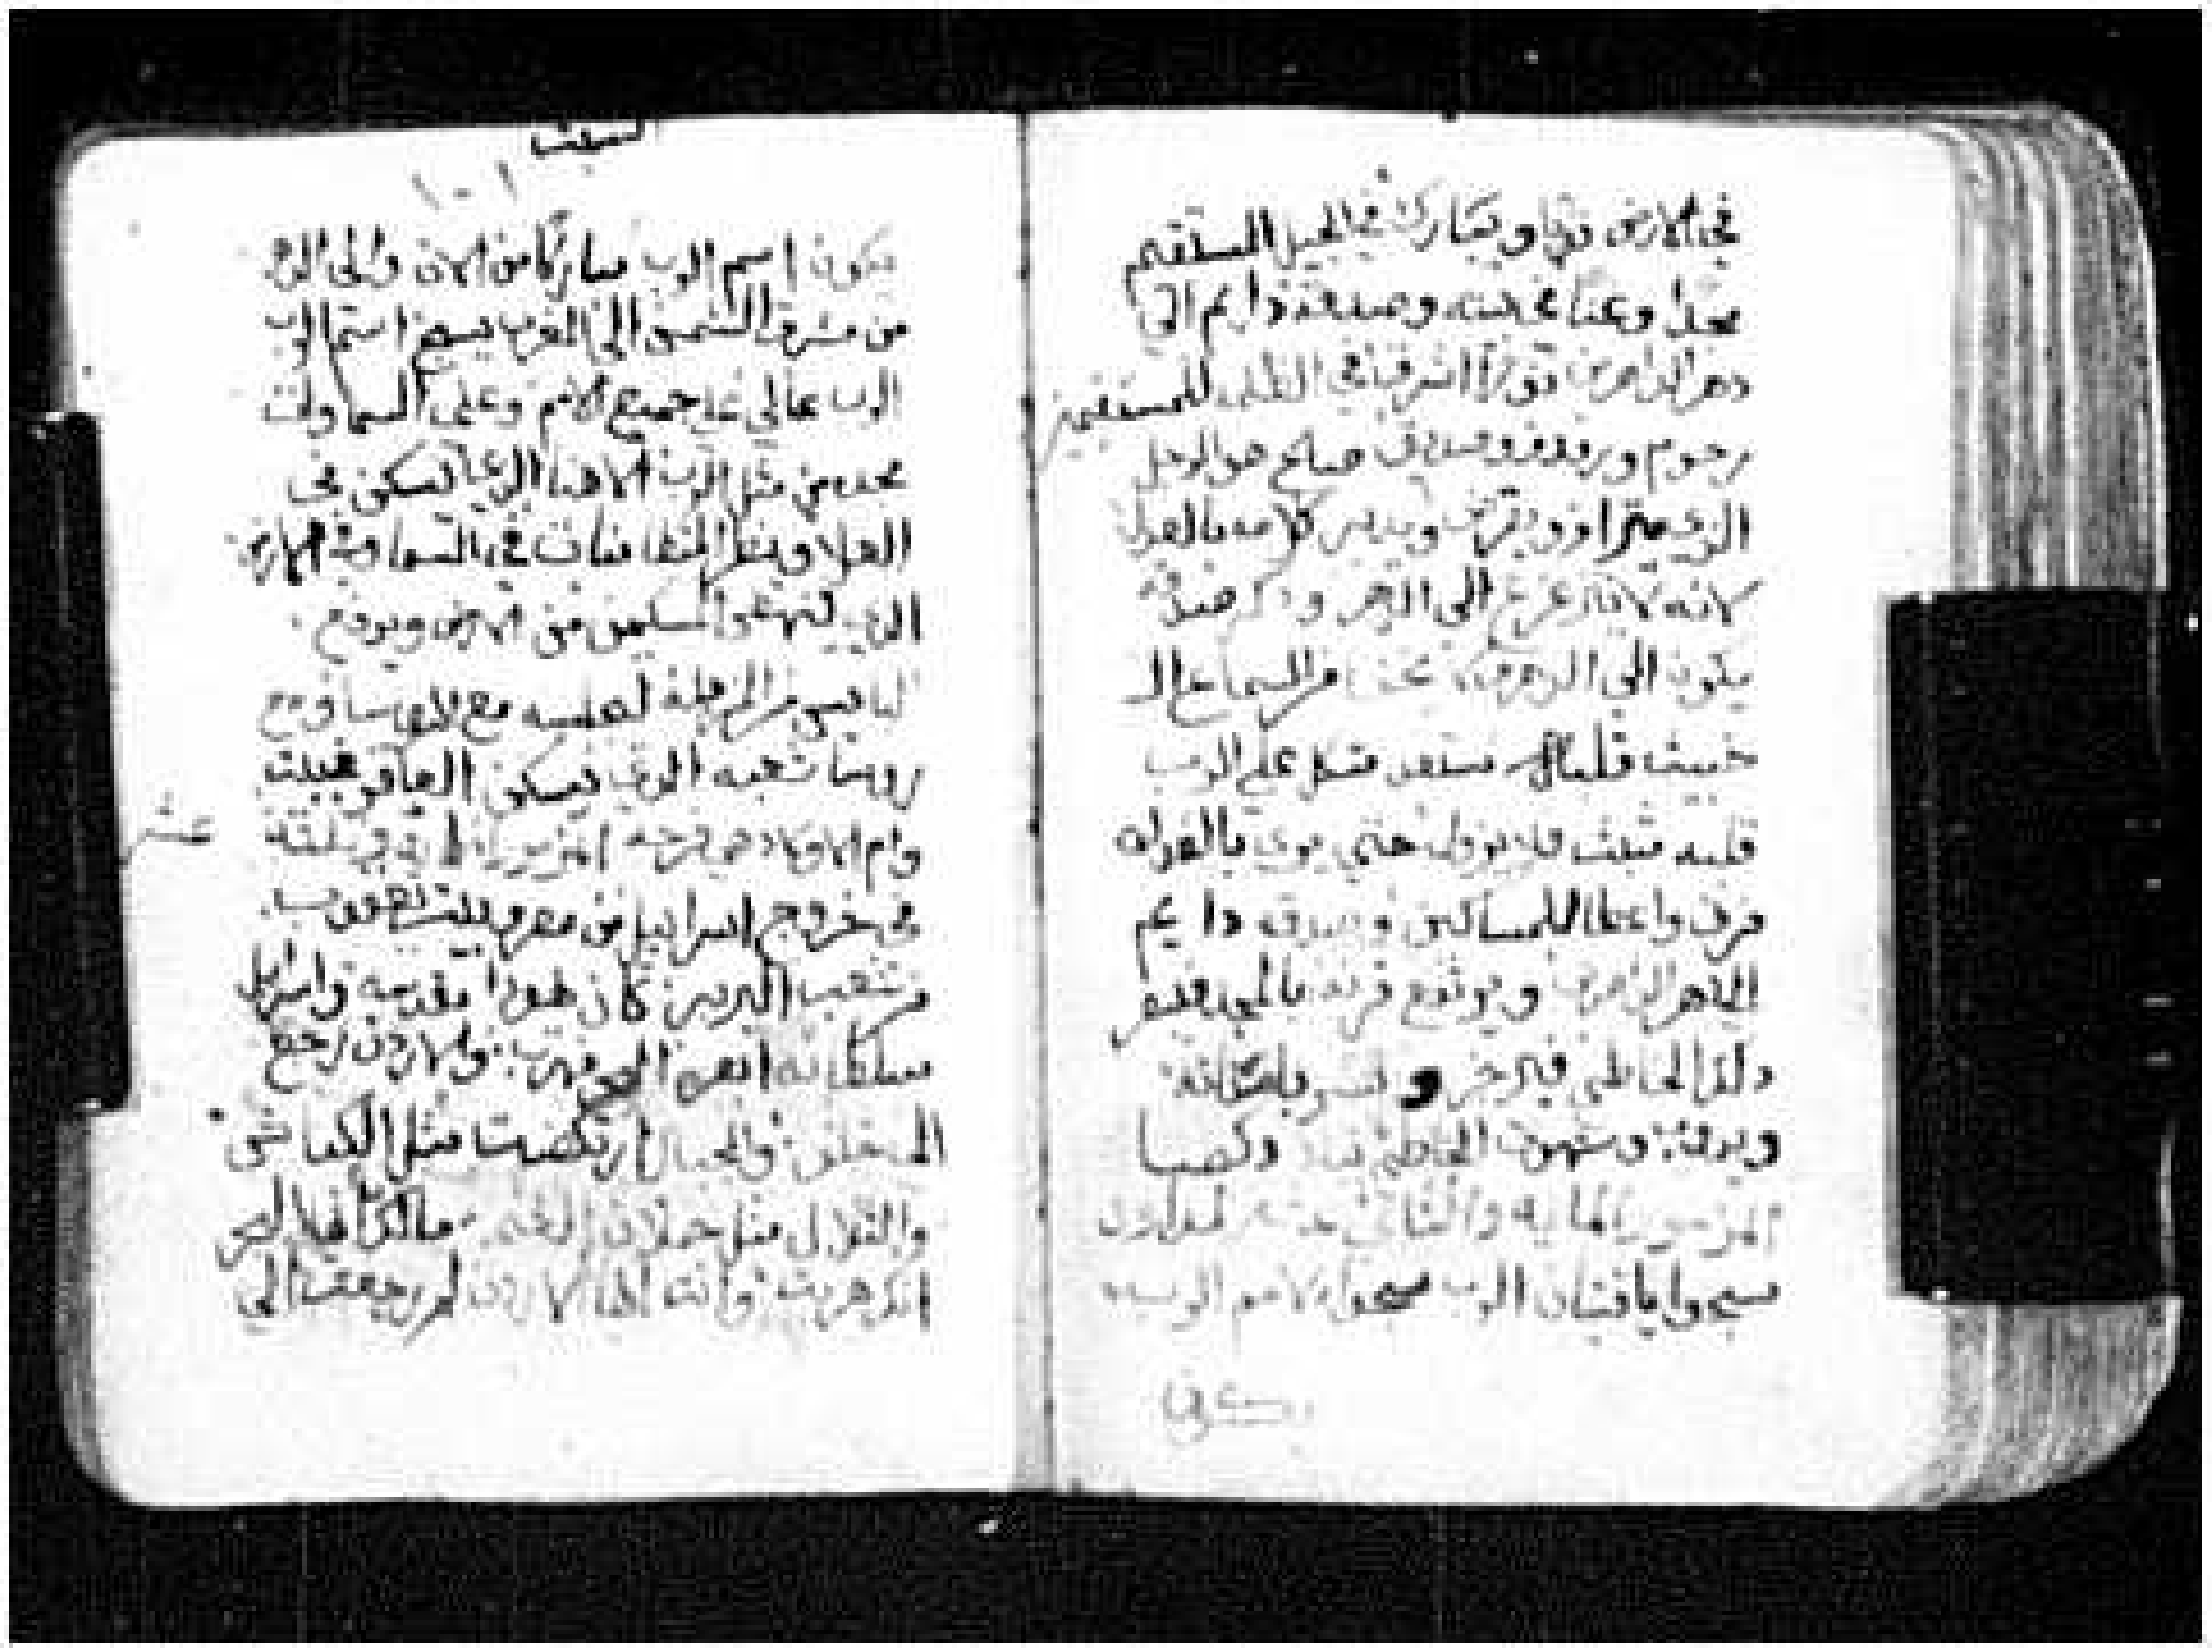 في الارض قويا ويتبارك في الجيل المستقيم
مجدا وغنا في بيته وعدله دايم الى
دهر الداهرين نورا اشرقنا في الظلمه للمستقيمين
رحوم وروف وصديق صالح هو الرجل
الذي يترااف ويقرض ويدبر كلامه بالعدل
لانه لا يتزعزع الى الدهر وذكر صديق
يكون الى الدهر من السماع ال
خبيث قلبه مستعد متكل على الرب
قلبه مثبت فلا يزول حتى يرى بالعداه
فرق واعطا للمساكين وبره دايم
الى دهر الداهرين ويرتفع قرنه بالمجد
الخاطي فيزجر و باسنانه
ويذوب وشهوت الخاطي تباد
المزمور المايه والثاني عشر
سبحوا يا فتيان الرب سبحوا لاسم الرب
السبت
١٠١
يكون اسم الرب مباركا من الان والى الدهر
من مشرق الشمس الى المغرب يسبح اسم الرب
الرب عالي على جميع الامم وعلى السماوات
مجده من مثل الرب الاهنا الذي يسكن في
العلا وينظر المتواضعات في السما وفي الارض
الذي ينهض المسكين من الارض ويرفع
البايس من المزبله ليجلسه مع الروسا ومع
روسا شعبه الذي يسكن العاقر في بيت
وام الاولاد فرحه المزمور المايه وثلثة
عشر
في خروج اسراييل من مصر وبيت يعقوب
من شعب البربر كان يهودا مقدسه واسراييل
سلطانه ابصر البحر فهرب والاردن رجع
الى خلف والجبال ارتكضت مثل الكباش
والتلال مثل حملان الغنم مالك ايها البحر
انك هربت وانت ايها الاردن لم رجعت الى